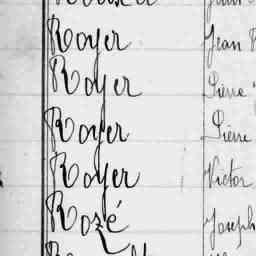 Royer Jean
Royer Pierre
Royer Pierre
Royer Victor
Rozé Joseph